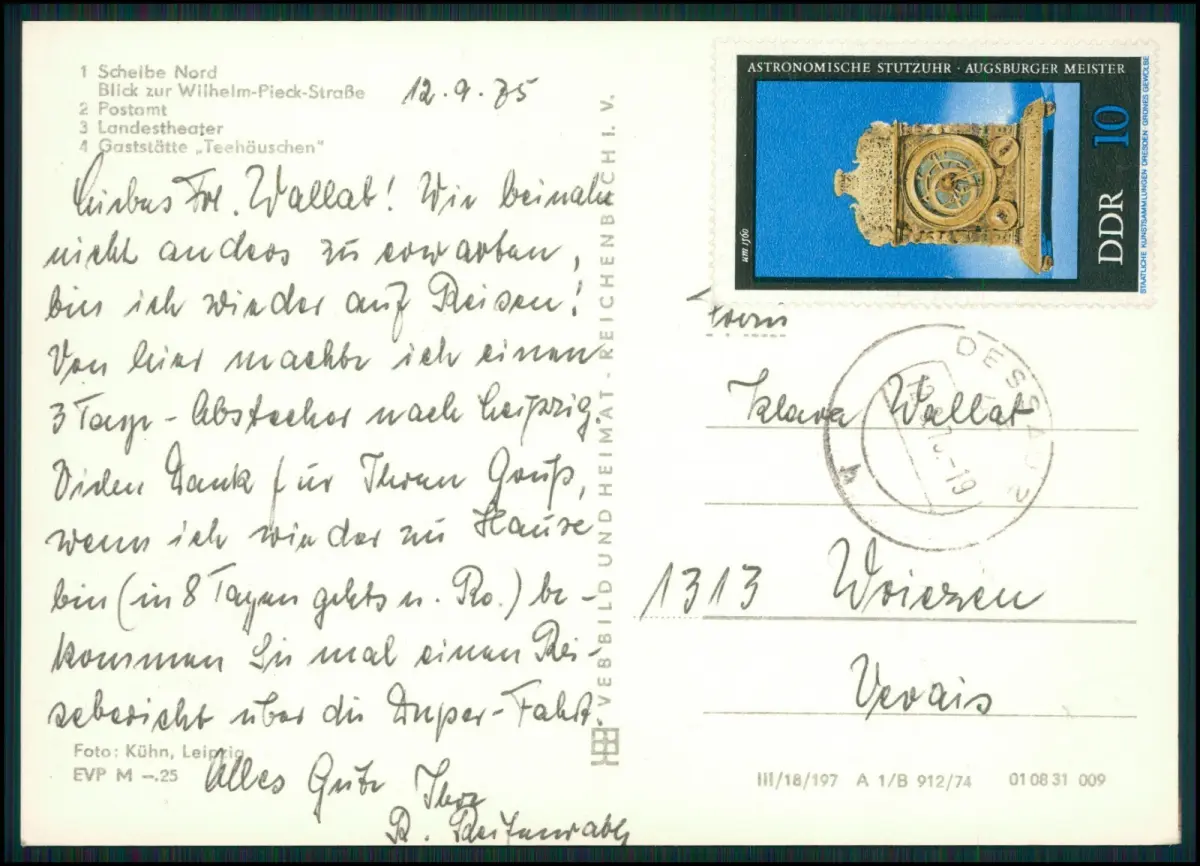 1 Scheibe Nord
Blick zur Wilhelm-Pieck-Straße
2 Postamt
3 Landestheater
4 Gaststätte „Teehäuschen"
12.9.75
Liebes Frl. Wallat! Wie beinahe
nicht anders zu erwarten,
bin ich wieder auf Reisen!
Von hier machte ich einen
3 Tage-Abstecher nach Leipzig.
Vielen Dank für Ihren Gruß,
wenn ich wieder zu Hause
bin (in 8 Tagen gehts n. Ro.) be-
kommen Sie mal einen Rei-
sebericht über die Super-Fahrt.
Alles Gute Ihre
R.
Foto: Kühn, Leipzig
EVP M –.25
VEB BILD UND HEIMAT · REICHENBACH I. V.
ASTRONOMISCHE STUTZUHR · AUGSBURGER MEISTER
um 1560
DDR 10
STAATLICHE KUNSTSAMMLUNGEN DRESDEN · GRÜNES GEWÖLBE
DESSAU 2
-19
b
Klara Wallat
1313 Wriezen
III/18/197 A 1/B 912/74 01 08 31 009